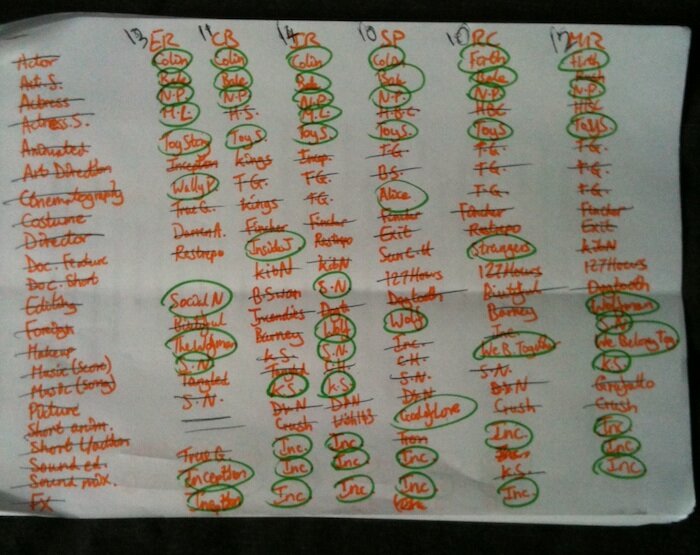 13 ER 11 CB 14 JR 10 SP 10 RC 12 MR
Actor Colin Colin Colin Colin Firth Firth
Act. S. Bale Bale Bale Bale Bale
Actress N.P. N.P. N.P. N.P. N.P. N.P.
Actress S. M.L. H.S. M.L. H.B.C HBC HBC
Animated Toy Story Toy S. Toy S. Toy S. Toy S Toy S.
Art Direction Inception Kings Incep. T.G. T.G. T.G.
Cinematography Wally P. T.G. T.G. B.S. T.G. T.G.
Costume True G. Kings T.G. Alice T.G. T.G.
Director Darren A. Fincher Fincher Fincher Fincher Fincher
Doc. Feature Restrepo Inside J Restrepo Exit Restrepo Exit
Doc. Short KibN KibN Sun C.H Strangers KibN
Editing Social N B.Swan S.N 127Hours 127Hours 127Hours
Foreign Biutiful Dogtooth Biutiful Dogtooth
Makeup The Wolfman Barney Wolf Wolf Barney Wolfman
Music (score) S.N K.S. S.N. Inc. Inc S.N
Music (song) Tangled C.H. C.H. We B. Together We Belong Tog
Picture S.N. K.S K.S S.N. S.N. K.S
Short anim. D&N D&N D&N D&N Gruffalo
Short l/action Crush Wish143 God of Love Crush Crush
Sound ed. True G. Inc. Inc. Tron Inc. Inc
Sound mix. Inception Inc. Inc. Inc. K.S. Inc
FX Inception Inc. Inc Inc. Inc. Inc